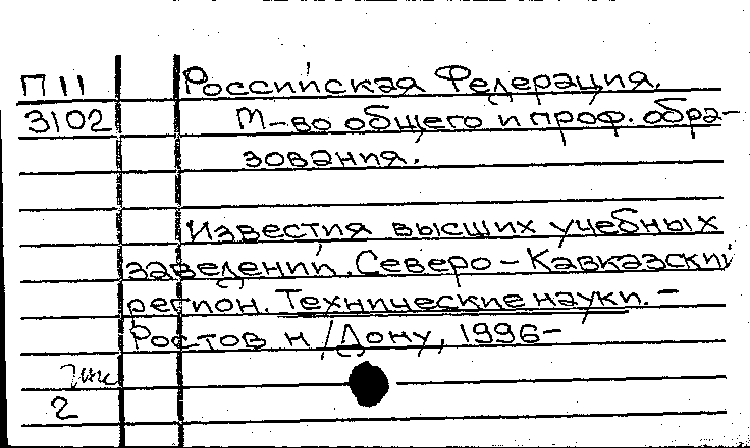 П 11 Российская Федерация.
3102 М-во общего и проф. обра-
зования.
Известия высших учебных
заведений. Северо-Кавказский
регион. Технические науки. -
Ростов н/Дону, 1996-
2